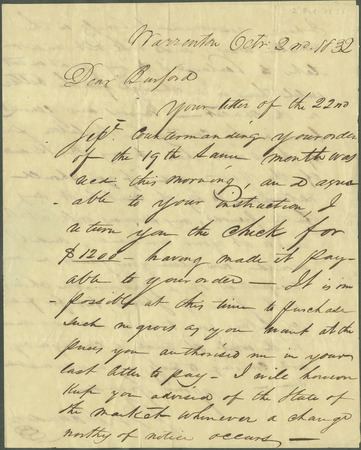 Warrenton Octr. 2nd. 1832
Dear Burford
Your letter of the 22nd
Sept. Countermanding your order
of the 19th Same month was
recd. this morning, and agree
-able to your instruction, I
return you the check for
$1200 - having made it pay-
able to your order - It is im
-possible at this time to purchase
such negroes as you want at the
prices you authorised me in your
last letter to pay - I will however
keep you advised of the State of
the market whenever a change
worthy of notice occurs, -